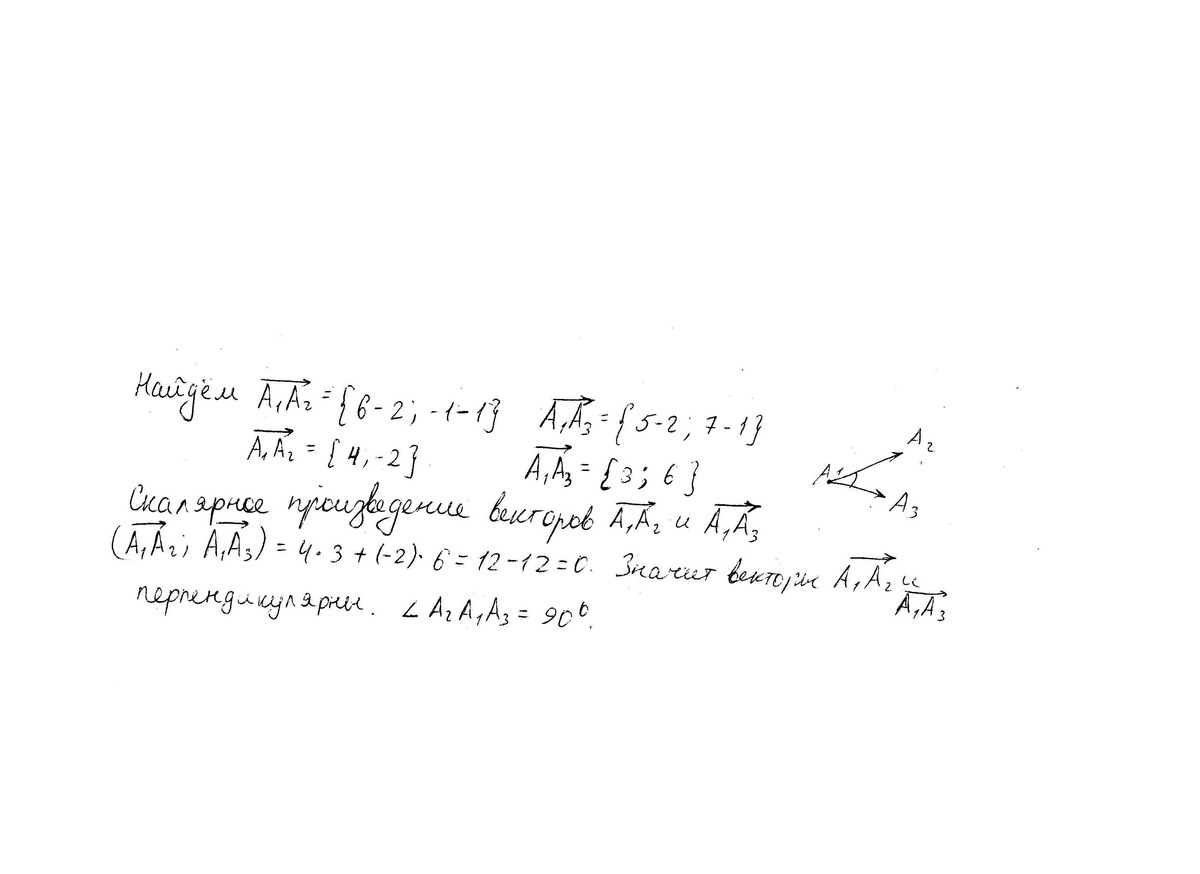 Найдём A₁A₂ = {6-2; -1-1} A₁A₃ = {5-2; 7-1}
A₁A₂ = {4, -2} A₁A₃ = {3; 6}
A₂
A₁
A₃
Скалярное произведение векторов A₁A₂ и A₁A₃
(A₁A₂; A₁A₃) = 4·3+(-2)·6=12-12=0. Значит векторы A₁A₂ и
A₁A₃
перпендикулярны. ∠A₂A₁A₃ = 90°.